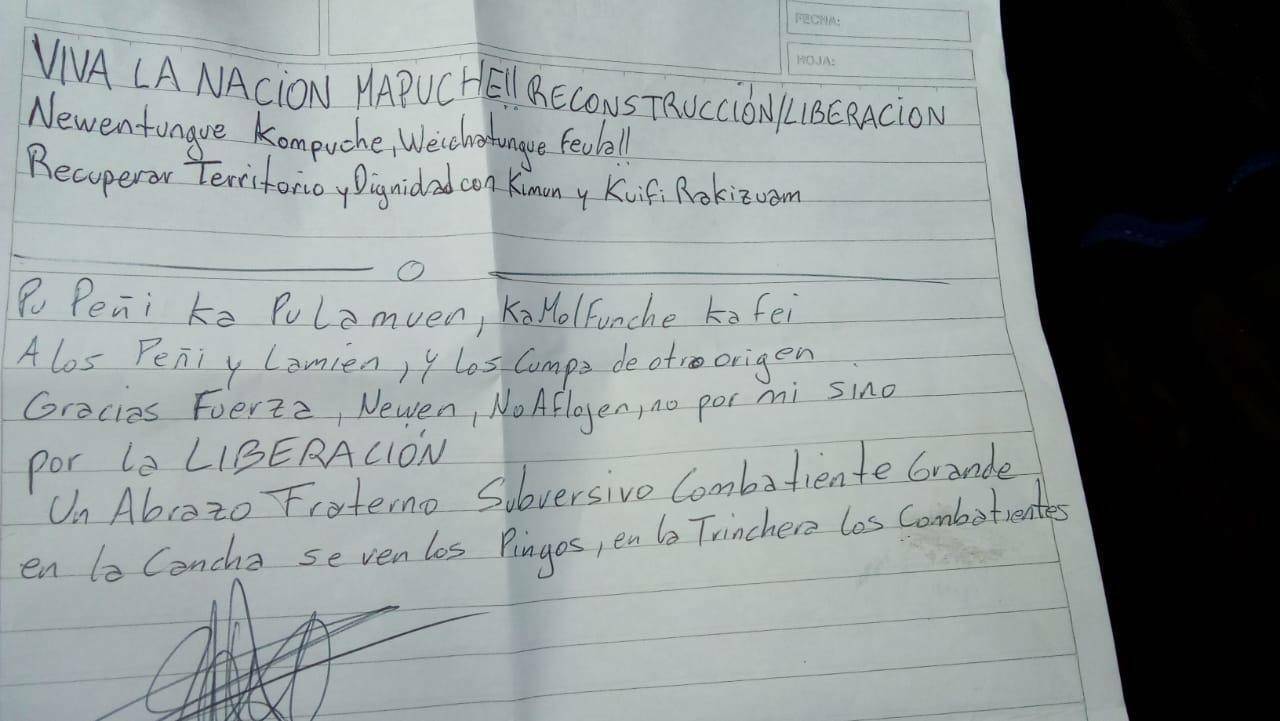 FECHA:
HOJA:
VIVA LA NACIÓN MAPUCHE!! RECONSTRUCCIÓN/LIBERACIÓN
Newentungue Kompuche, Weichatungue Feula!!
Recuperar Territorio y Dignidad con Kimun y Kuifi Rakizuam
O
Pu Peñi ka Pu Lamuen, Ka Molfunche ka fei
A los Peñi y Lamien, y los Cumpa de otro origen
Gracias Fuerza, Newen, No Aflojen, no por mi sino
por la LIBERACIÓN
Un Abrazo Fraterno Subversivo Combatiente Grande
en la Cancha se ven los Pingos, en la Trinchera los Combatientes